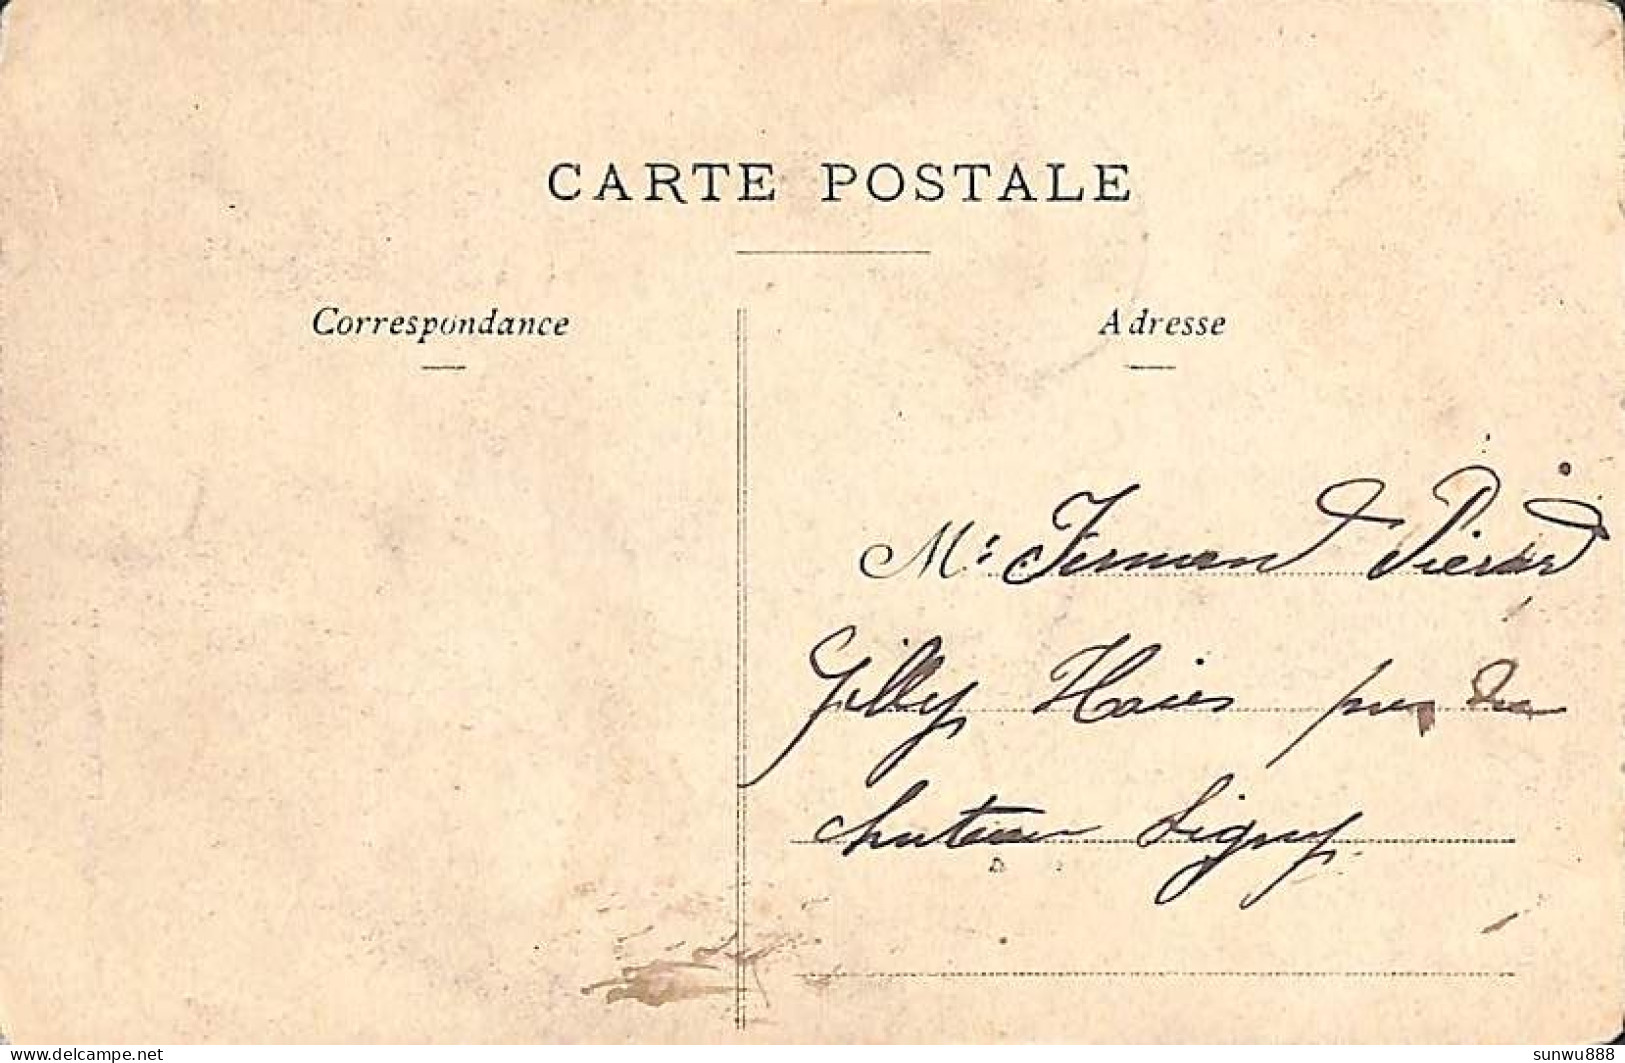 CARTE POSTALE
Correspondance
Adresse
Mr Fernand Piérard
Gilly Haies près du
château Ligny
www.delcampe.net
sunwu888